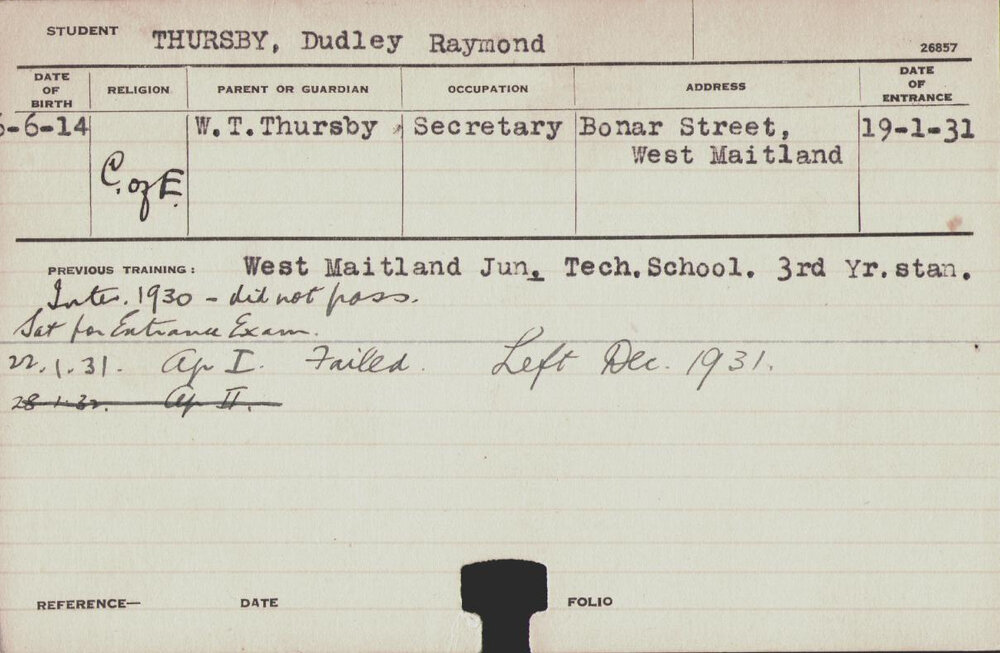 STUDENT THURSBY, Dudley Raymond
26857
DATE OF BIRTH RELIGION PARENT OR GUARDIAN OCCUPATION ADDRESS DATE OF ENTRANCE
-6-14 W.T.Thursby Secretary Bonar Street, 19-1-31
West Maitland
C. of E.
PREVIOUS TRAINING: West Maitland Jun. Tech.School. 3rd Yr.stan.
Inter. 1930 - did not pass.
Sat for Entrance Exam.
22.1.31. Ap I. Failed. Left Dec. 1931.
28.1.32. Ap II.
REFERENCE— DATE FOLIO